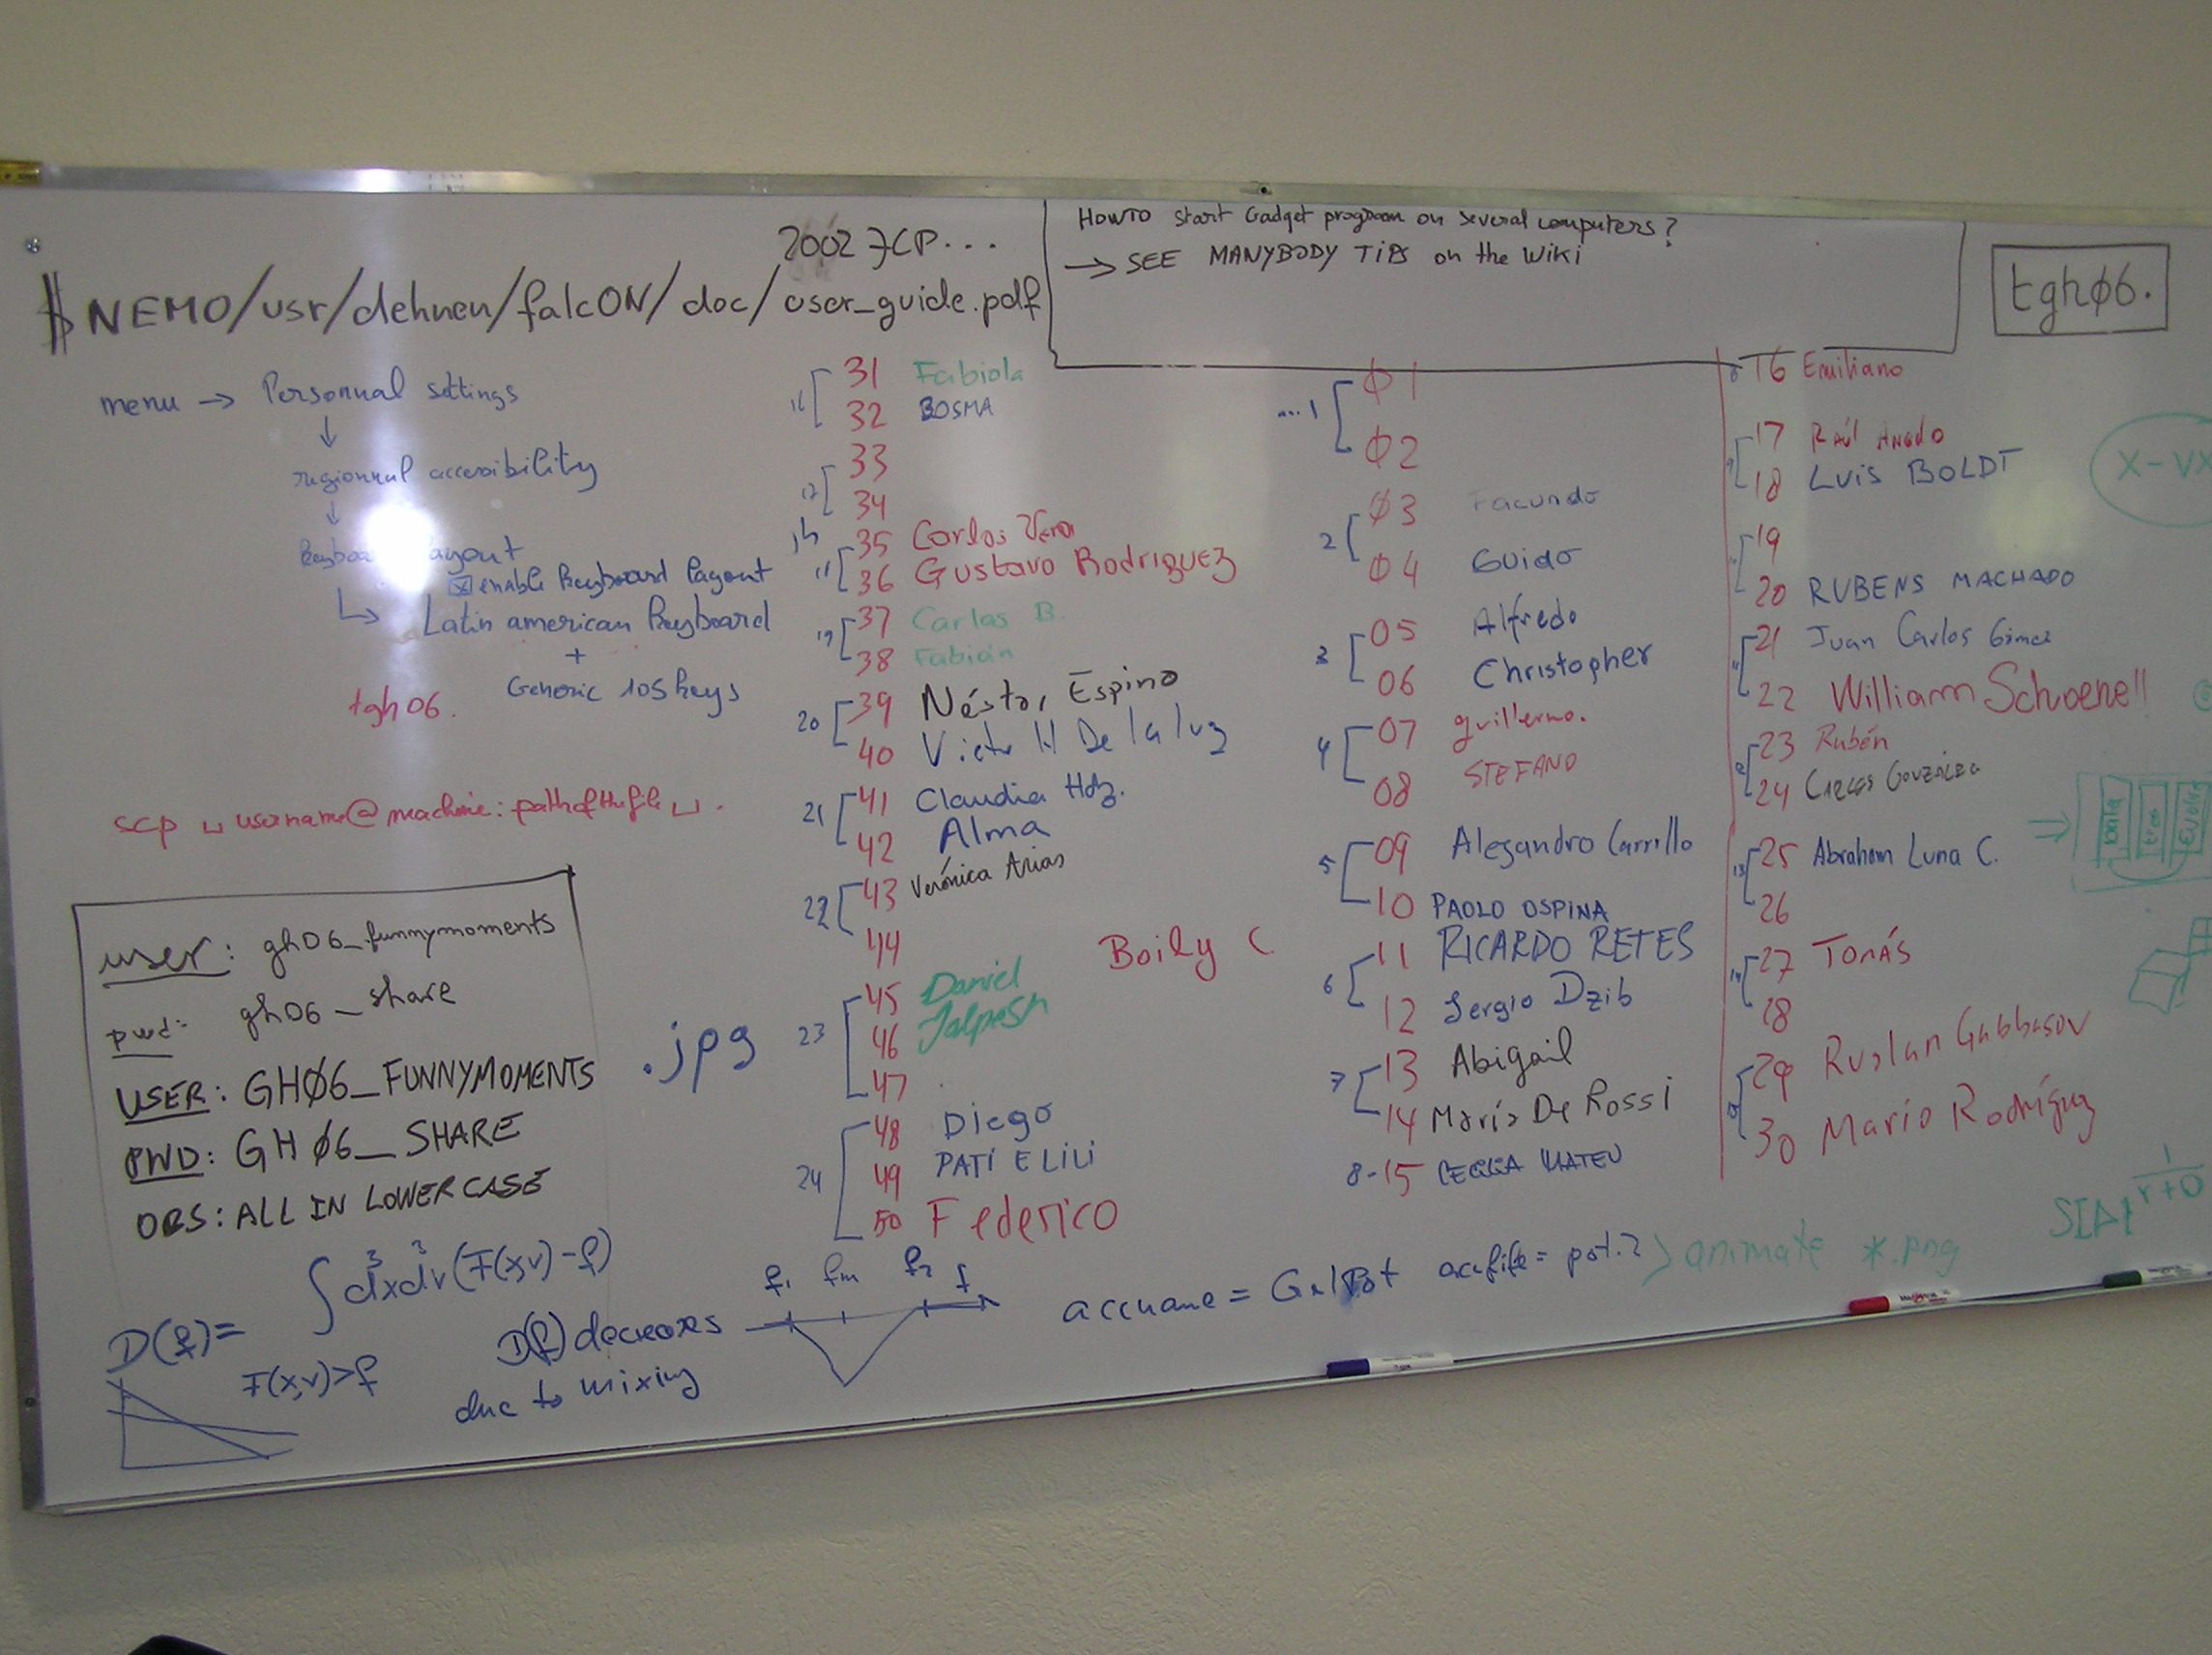 2002 JCP...
$NEMO/usr/dehnen/falcON/doc/user_guide.pdf
HOWTO start Gadget program on several computers?
→ SEE MANYBODY TIPS on the Wiki
tgh06.
menu → Personnal settings
↓
regionnal accessibility
↓
Keyboa ayout
☒ enable Keyboard layout
↳ Latin american keyboard
+
Generic 105 keys
tgh06.
scp ␣ username@machine:pathofthefile ␣ .
user: gh06_funnymoments
pwd: gh06_share
USER: GH06_FUNNYMOMENTS
PWD: GH06_SHARE
OBS: ALL IN LOWER CASE
.jpg
31 Fabiola
32 BOSMA
33
34
35 Carlos Vera
36 Gustavo Rodriguez
37 Carlos B.
38 Fabián
20 39 Néstor Espino
40 Victor H De la luz
21 41 Claudia Hdz.
42 Alma
22 43 Verónica Arias
44
Boily C
45 Daniel
23 46 Jalpesh
47
48 Diego
24 49 PATI E LILI
50 Federico
...1 01
02
2 03 Facundo
04 Guido
3 05 Alfredo
06 Christopher
4 07 guillermo.
08 STEFANO
5 09 Alejandro Carrillo
10 PAOLO OSPINA
6 11 RICARDO RETES
12 Sergio Dzib
7 13 Abigail
14 María De Rossi
8-15 CECILIA MATEU
16 Emiliano
17 Raúl
18 LUIS BOLDT
19
20 RUBENS MACHADO
21 Juan Carlos Gómez
22 William Schoenell
23 Rubén
24 Carlos González
25 Abraham Luna C.
26
27 TOMÁS
28
29 Ruslan Gabbasov
30 Mario Rodríguez
X-VX
Data
D(f)= ∫d³xd³v(F(x,v)-f)
F(x,v)>f
D(f) decreases
due to mixing
f1 fm f2 f
accname = GalPot accfile = pot.2
animate *.png